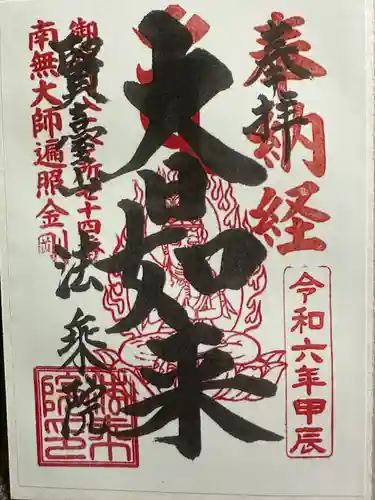 奉拝
奉納経
令和六年甲辰
大日如来
御府内八十八ヶ所七十四番
南無大師遍照金剛
法乗院